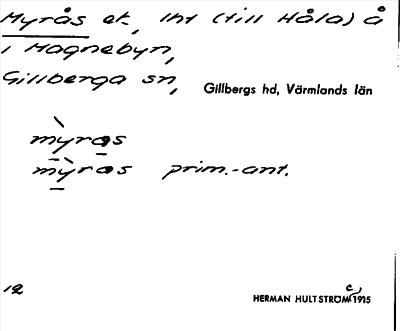 Myrås et, lht (till Håla) å
i Magnebyn,
Gillberga sn,
Gillbergs hd, Värmlands län
mỳras
mỳras prim.-ant.
12
HERMAN HULTSTRÖM c. 1915